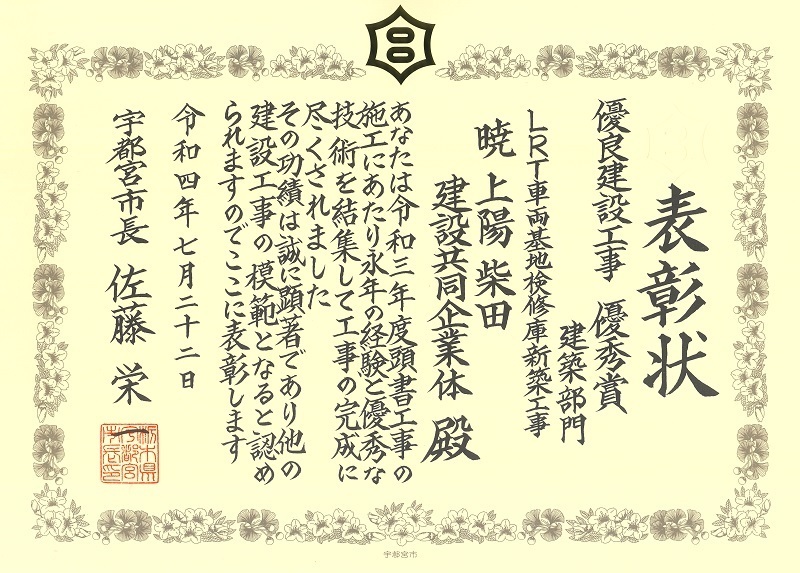 表彰状
優良建設工事 優秀賞
建築部門
LRT車両基地検修庫新築工事
暁 上陽 柴田
建設共同企業体 殿
あなたは令和三年度頭書工事の
施工にあたり永年の経験と優秀な
技術を結集して工事の完成に
尽くされました
その功績は誠に顕著であり他の
建設工事の模範となると認め
られますのでここに表彰します
令和四年七月二十二日
宇都宮市長 佐藤 栄一
栃木県
宇都宮
市長印
宇都宮市